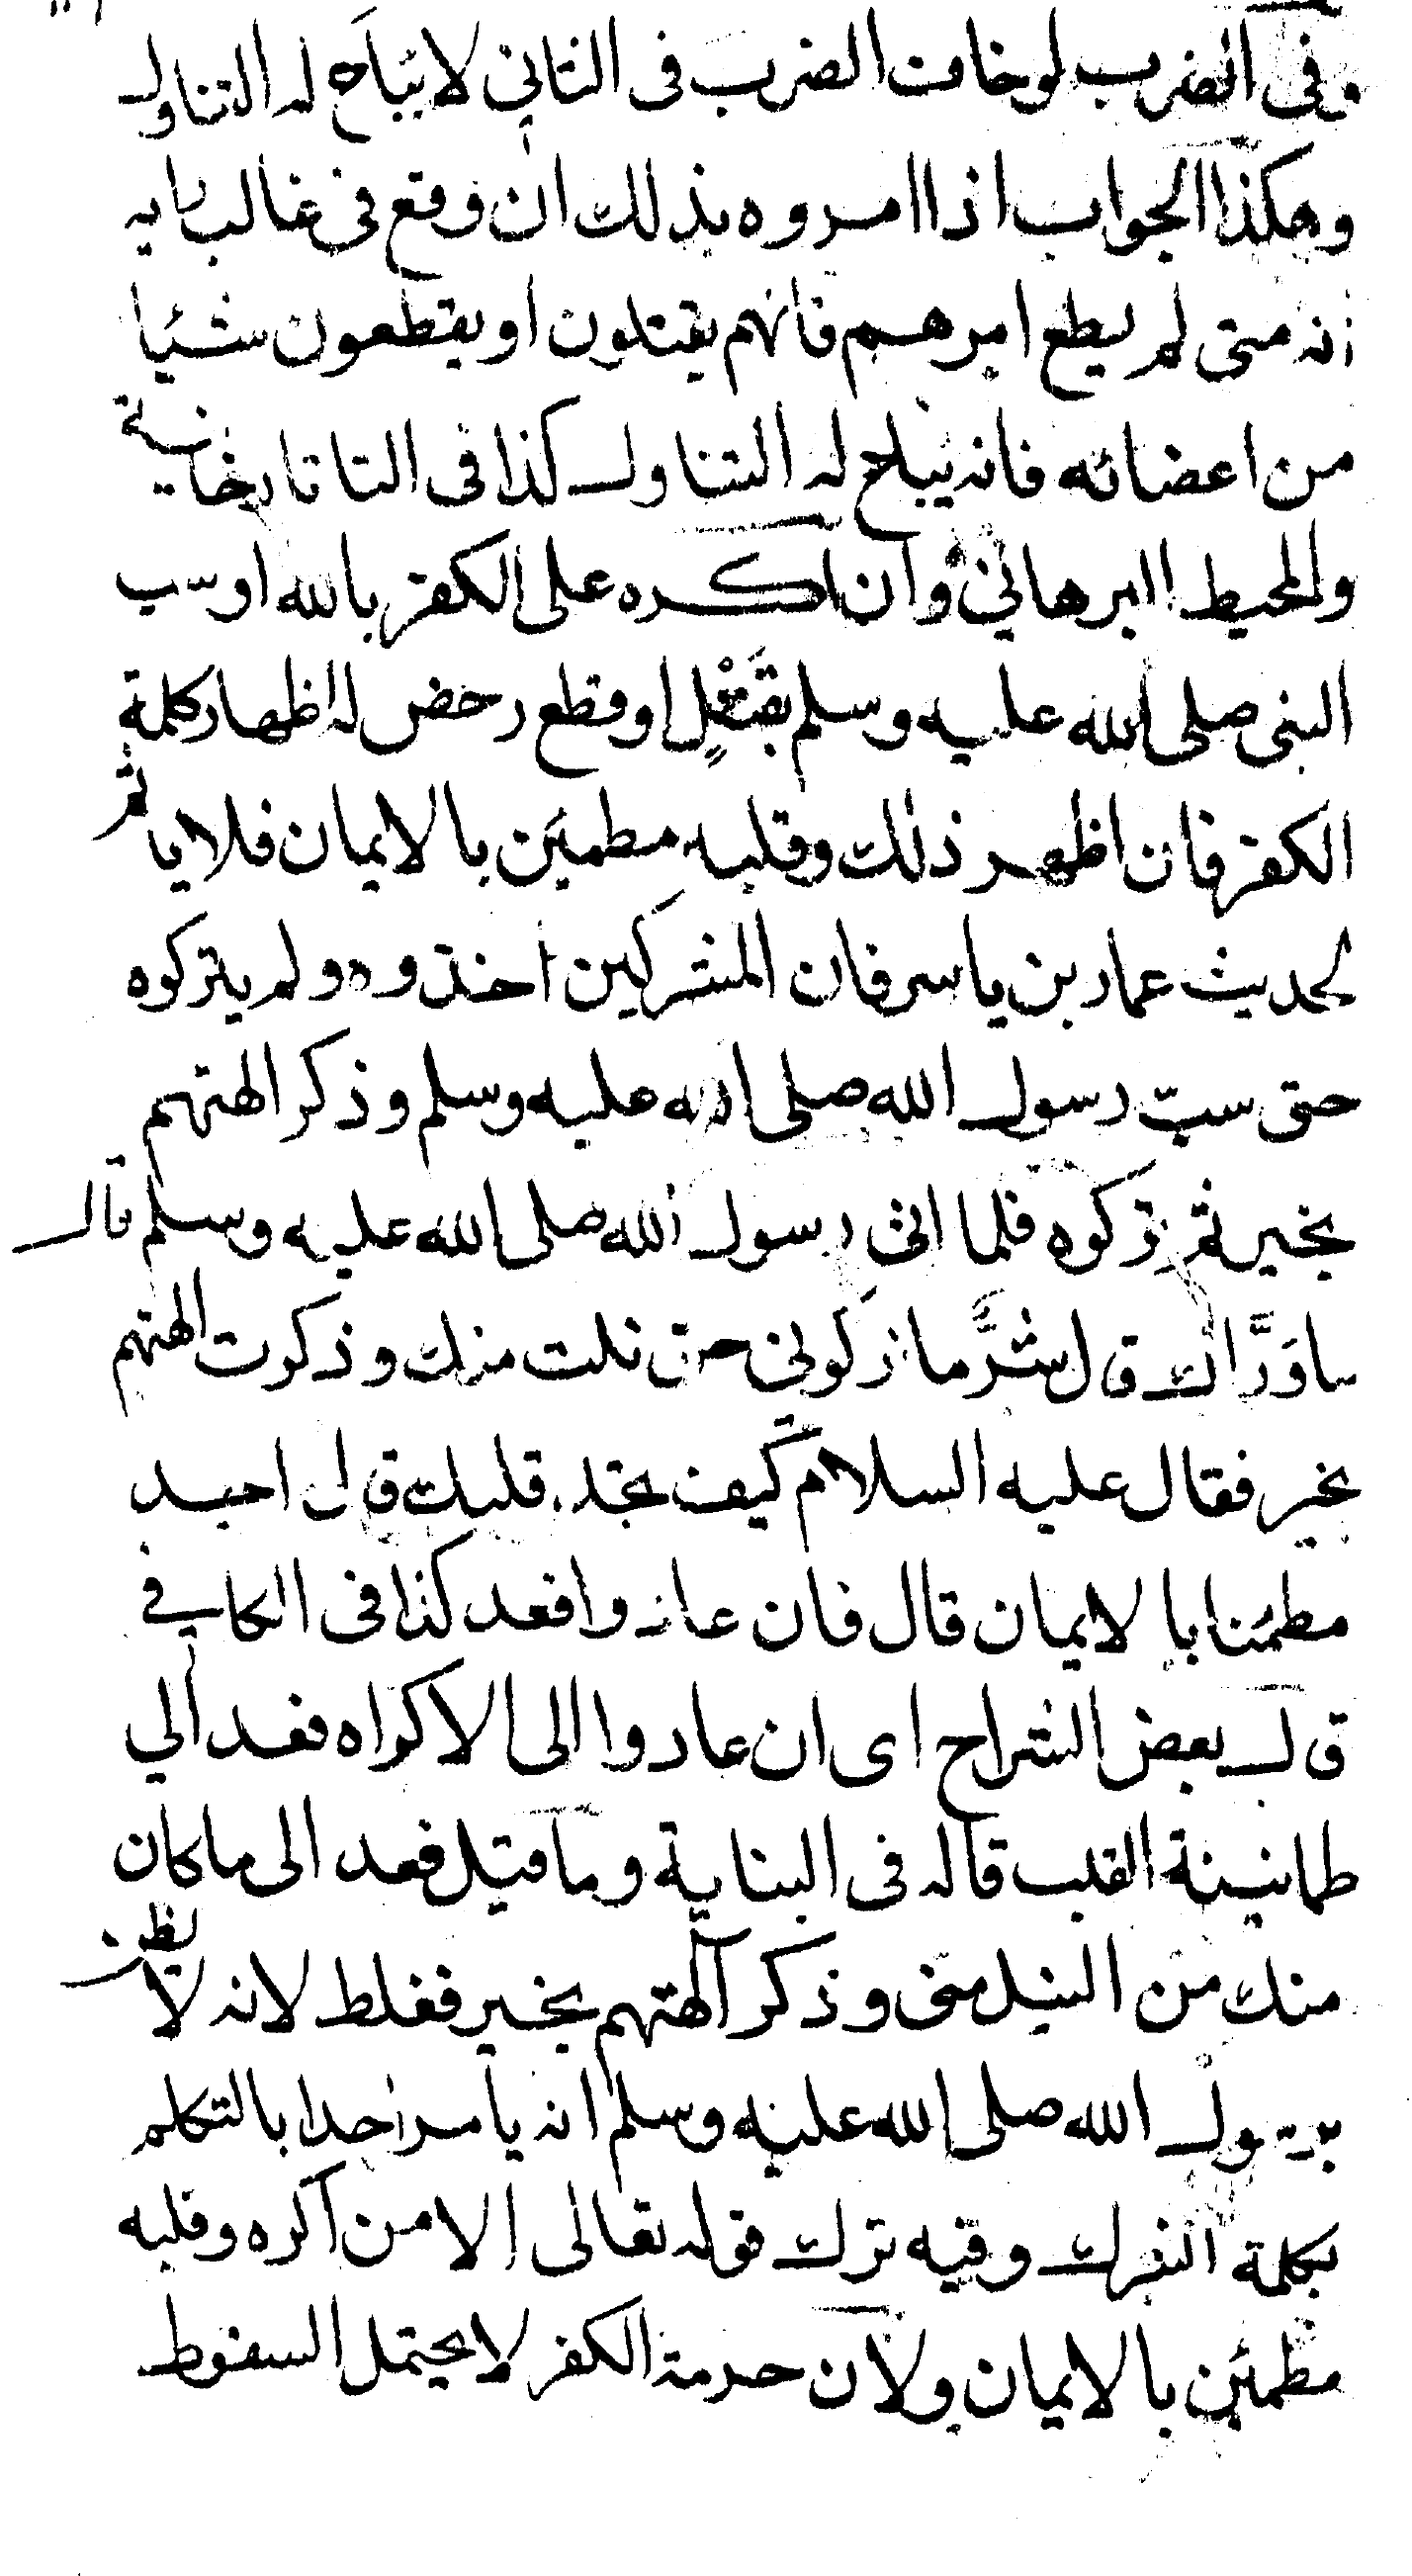 وفى الضرب لو خاف الضرب فى الثانى لا يباح له التناول
وهكذا الجواب اذا امروه بذلك ان وقع فى غالب رايه
انه متى لم يطع امرهم فانهم يقتلون او يقطعون شئيا
من اعضائه فانه يباح له التناول كذا فى التاتارخانية
والمحيط البرهانى وان اكره على الكفر بالله او سب
النبى صلى الله عليه وسلم بقتل او قطع رخص له اظهار كلمة
الكفر فان اظهر ذلك وقلبه مطمئن بالايمان فلا ياثم
لحديث عمار بن ياسر فان المشركين اخذوه ولم يتركوه
حتى سبّ رسول الله صلى الله عليه وسلم وذكر الهتهم
بخير ثم تركوه فلما اتى رسول الله صلى الله عليه وسلم قال
ما وَرَّاك قال شَرَّ ما تركونى حتى نلت منك وذكرت الهتهم
بخير فقال عليه السلام كيف تجد قلبك قال اجد
مطمئنا بالايمان قال فان عادوا فعد كذا فى الكافي
قال بعض الشراح اى ان عادوا الى الاكراه فعد الي
طمانينة القلب قاله فى البناية وما قيل فعد الى ما كان
منك من النيل منى وذكر آلهتهم بخير فغلط لانه لا يظن
برسول الله صلى الله عليه وسلم انه يامر احدا بالتكلم
بكلمة الشرك وفيه ترك قوله تعالى الا من اكره وقلبه
مطمئن بالايمان ولان حرمة الكفر لا يحتمل السقوط